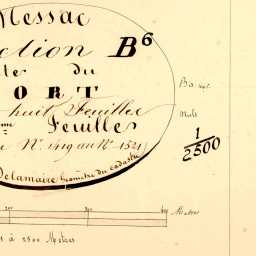 Messac
ction B⁶
te du
ORT
huit Feuilles
me Feuille
Nº. 1419 au Nº. 1521
Delamaire Géomètre du cadastre
1
2500
200
300
400 Mètres
1 à 2500 Mètres